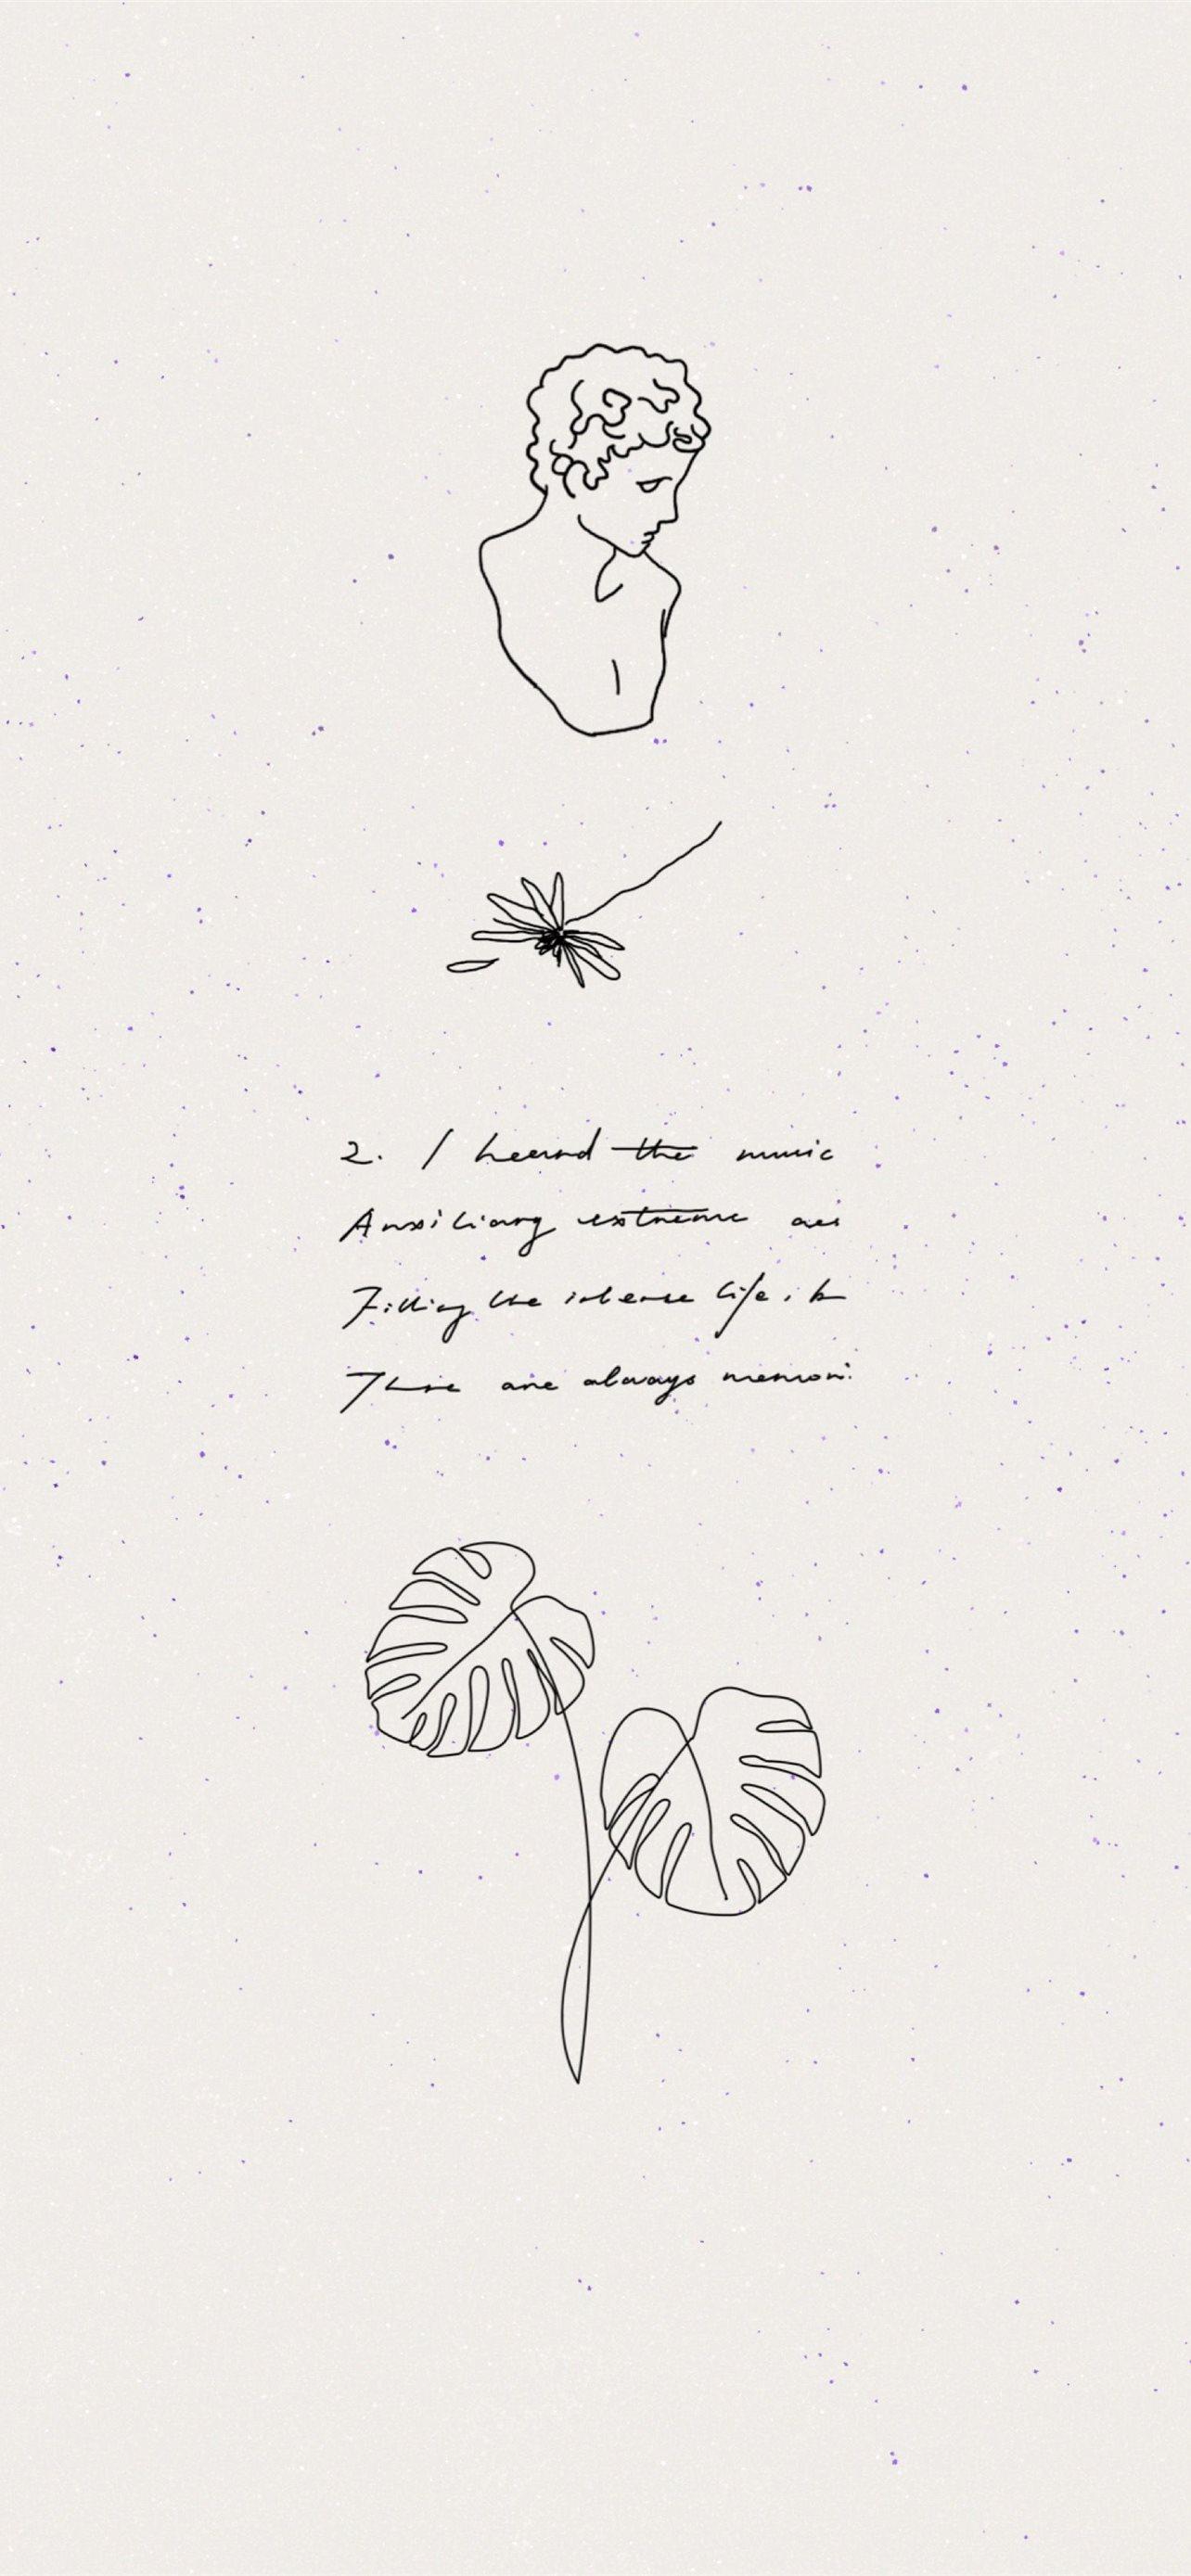 2. I heard the music
Auxiliary extreme
Filling the intense life,
There are always